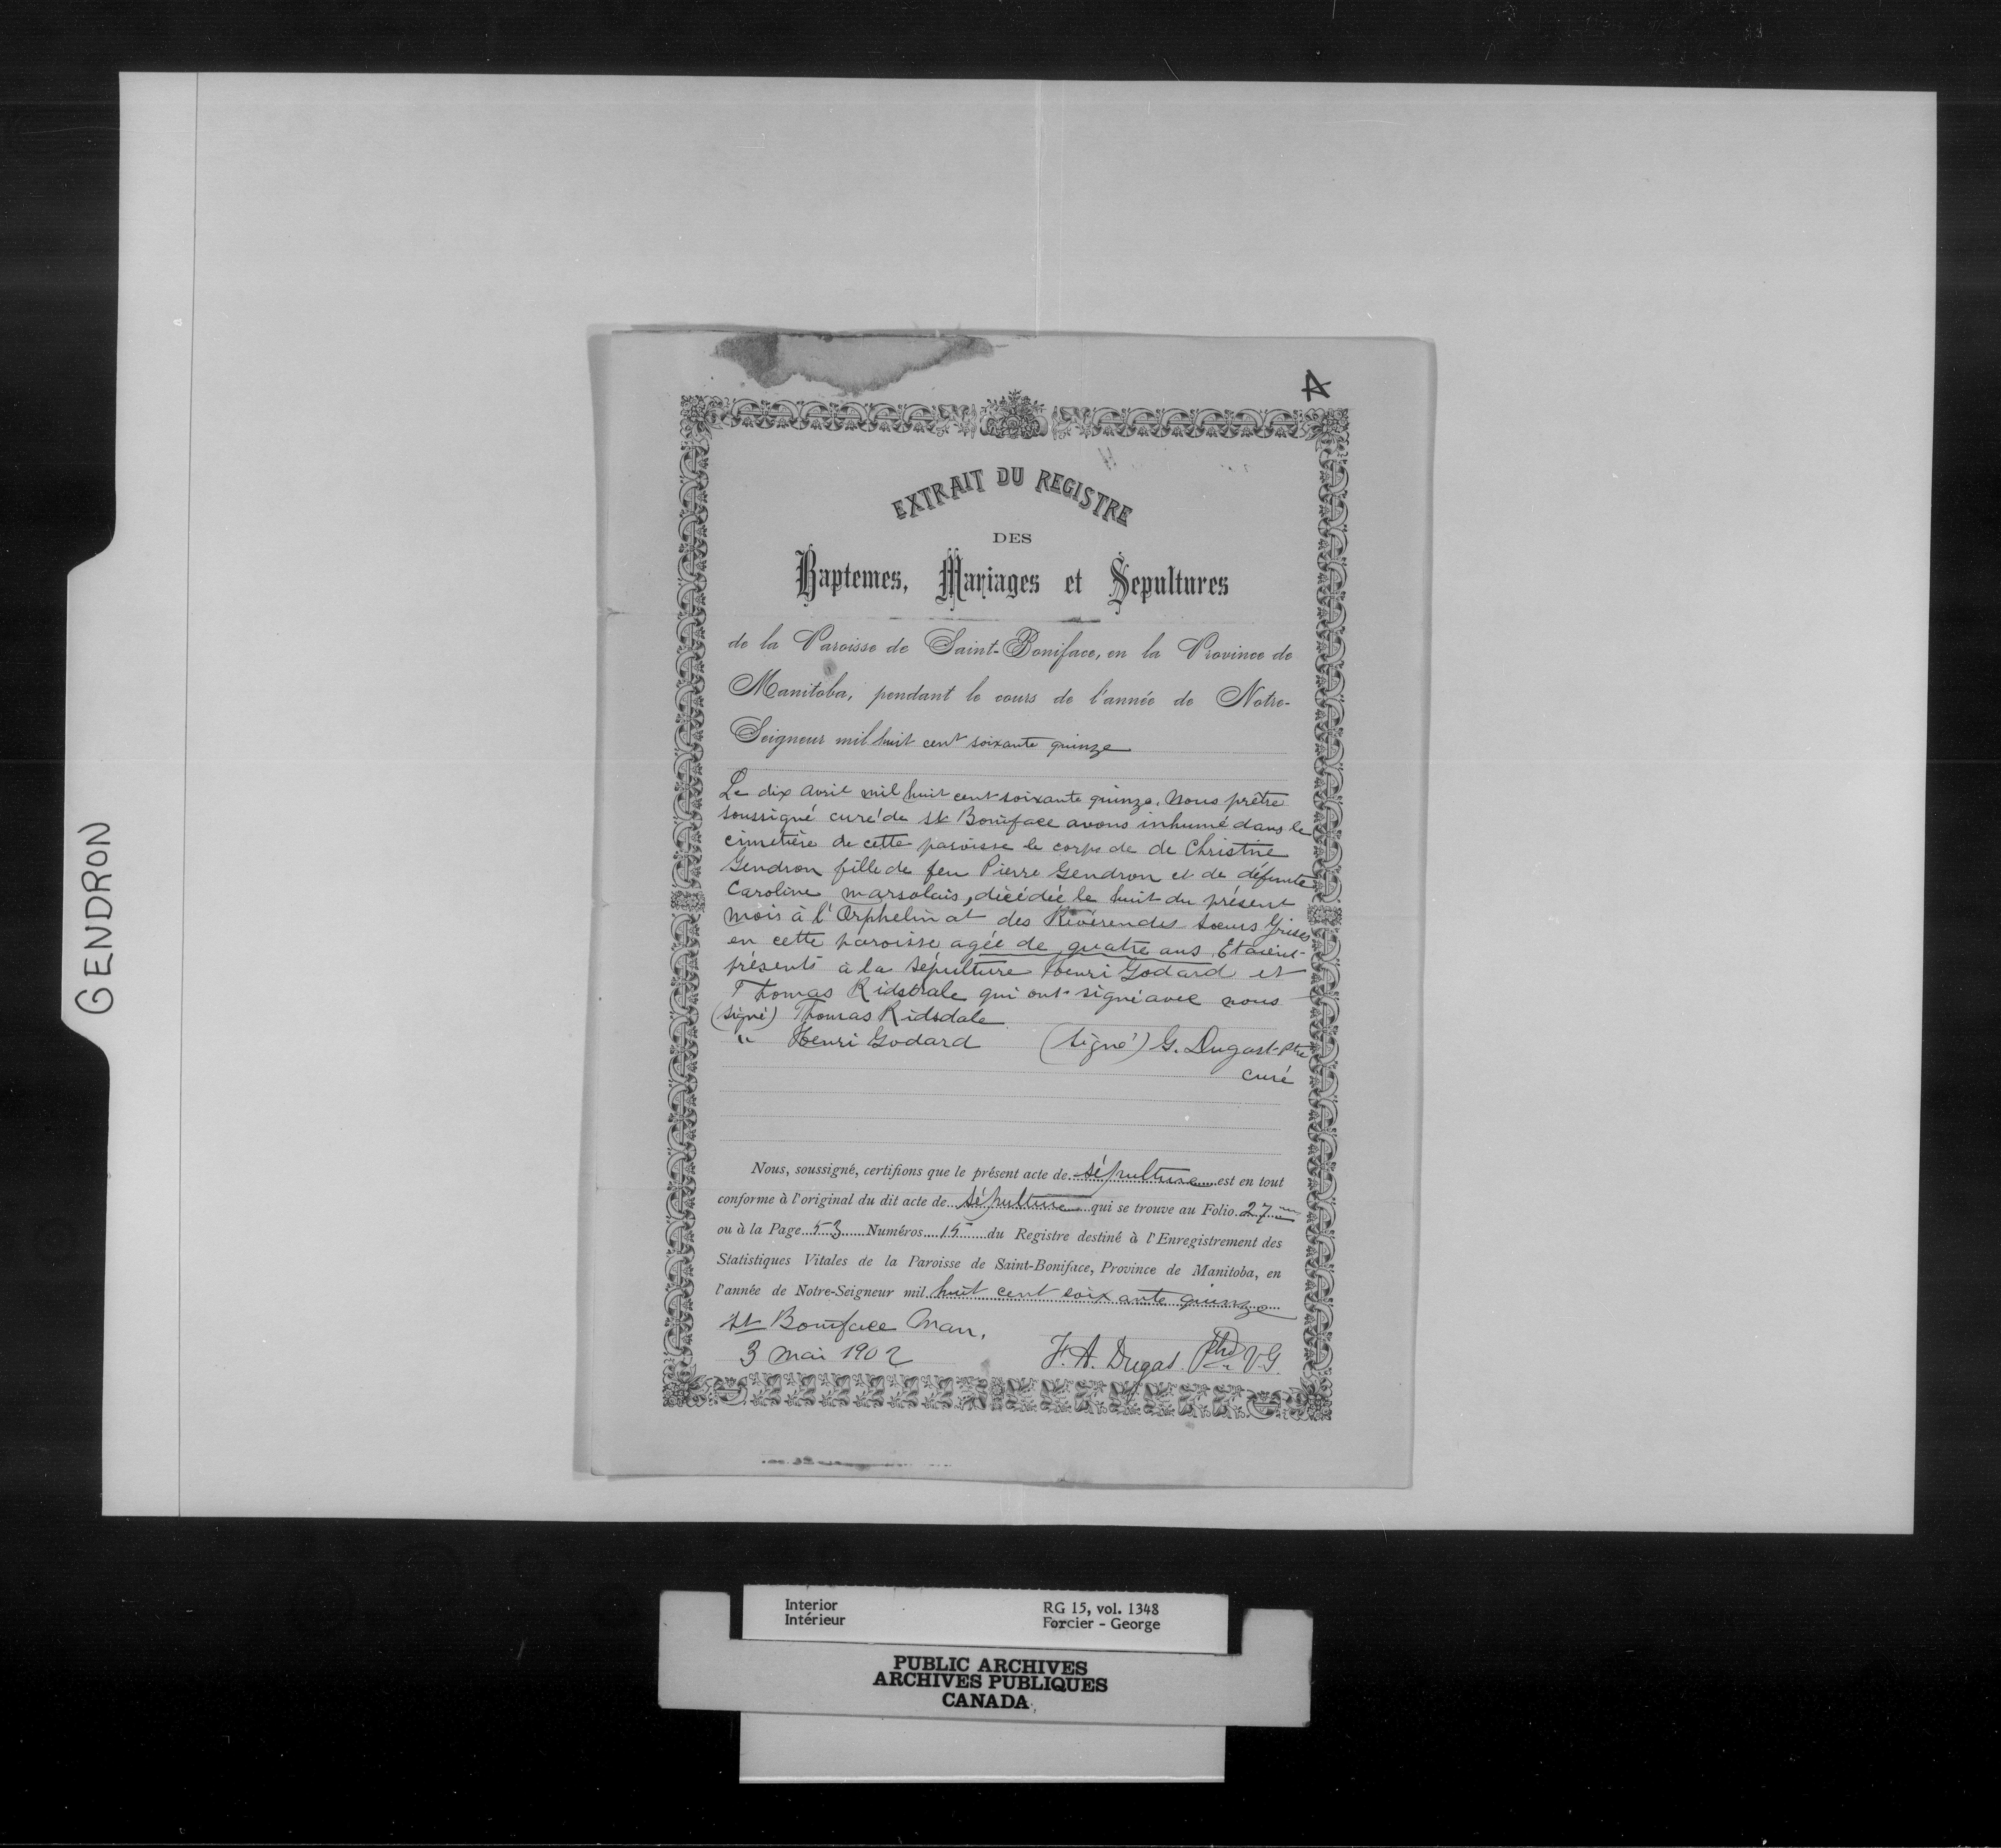 GENDRON
A
EXTRAIT DU REGISTRE
DES
Baptemes, Mariages et Sepultures
de la Paroisse de Saint-Boniface, en la Province de
Manitoba, pendant le cours de l'année de Notre-
Seigneur mil huit cent soixante quinze
Le dix avril mil huit cent soixante quinze. Nous prêtre
soussigné curé de St Boniface avons inhumé dans le
cimetière de cette paroisse le corps de de Christine
Gendron fille de feu Pierre Gendron et de défunte
Caroline Marsolais, décédée le huit du présent
mois à l'Orphelinat des Révérendes Soeurs Grises
en cette paroisse agée de quatre ans. Etaient
présents à la sépulture Henri Godard et
Thomas Ridsdale qui ont signé avec nous
(signé) Thomas Ridsdale
" Henri Godard (signé) G. Dugast ptre
curé
Nous, soussigné, certifions que le présent acte de sépulture est en tout
conforme à l'original du dit acte de sépulture qui se trouve au Folio 27
ou à la Page 53 Numéros 15 du Registre destiné à l'Enregistrement des
Statistiques Vitales de la Paroisse de Saint-Boniface, Province de Manitoba, en
l'année de Notre-Seigneur mil huit cent soixante quinze
St Boniface Man.
3 mai 1902 F. A. Dugas Ptre V.G.
Interior RG 15, vol. 1348
Intérieur Forcier - George
PUBLIC ARCHIVES
ARCHIVES PUBLIQUES
CANADA